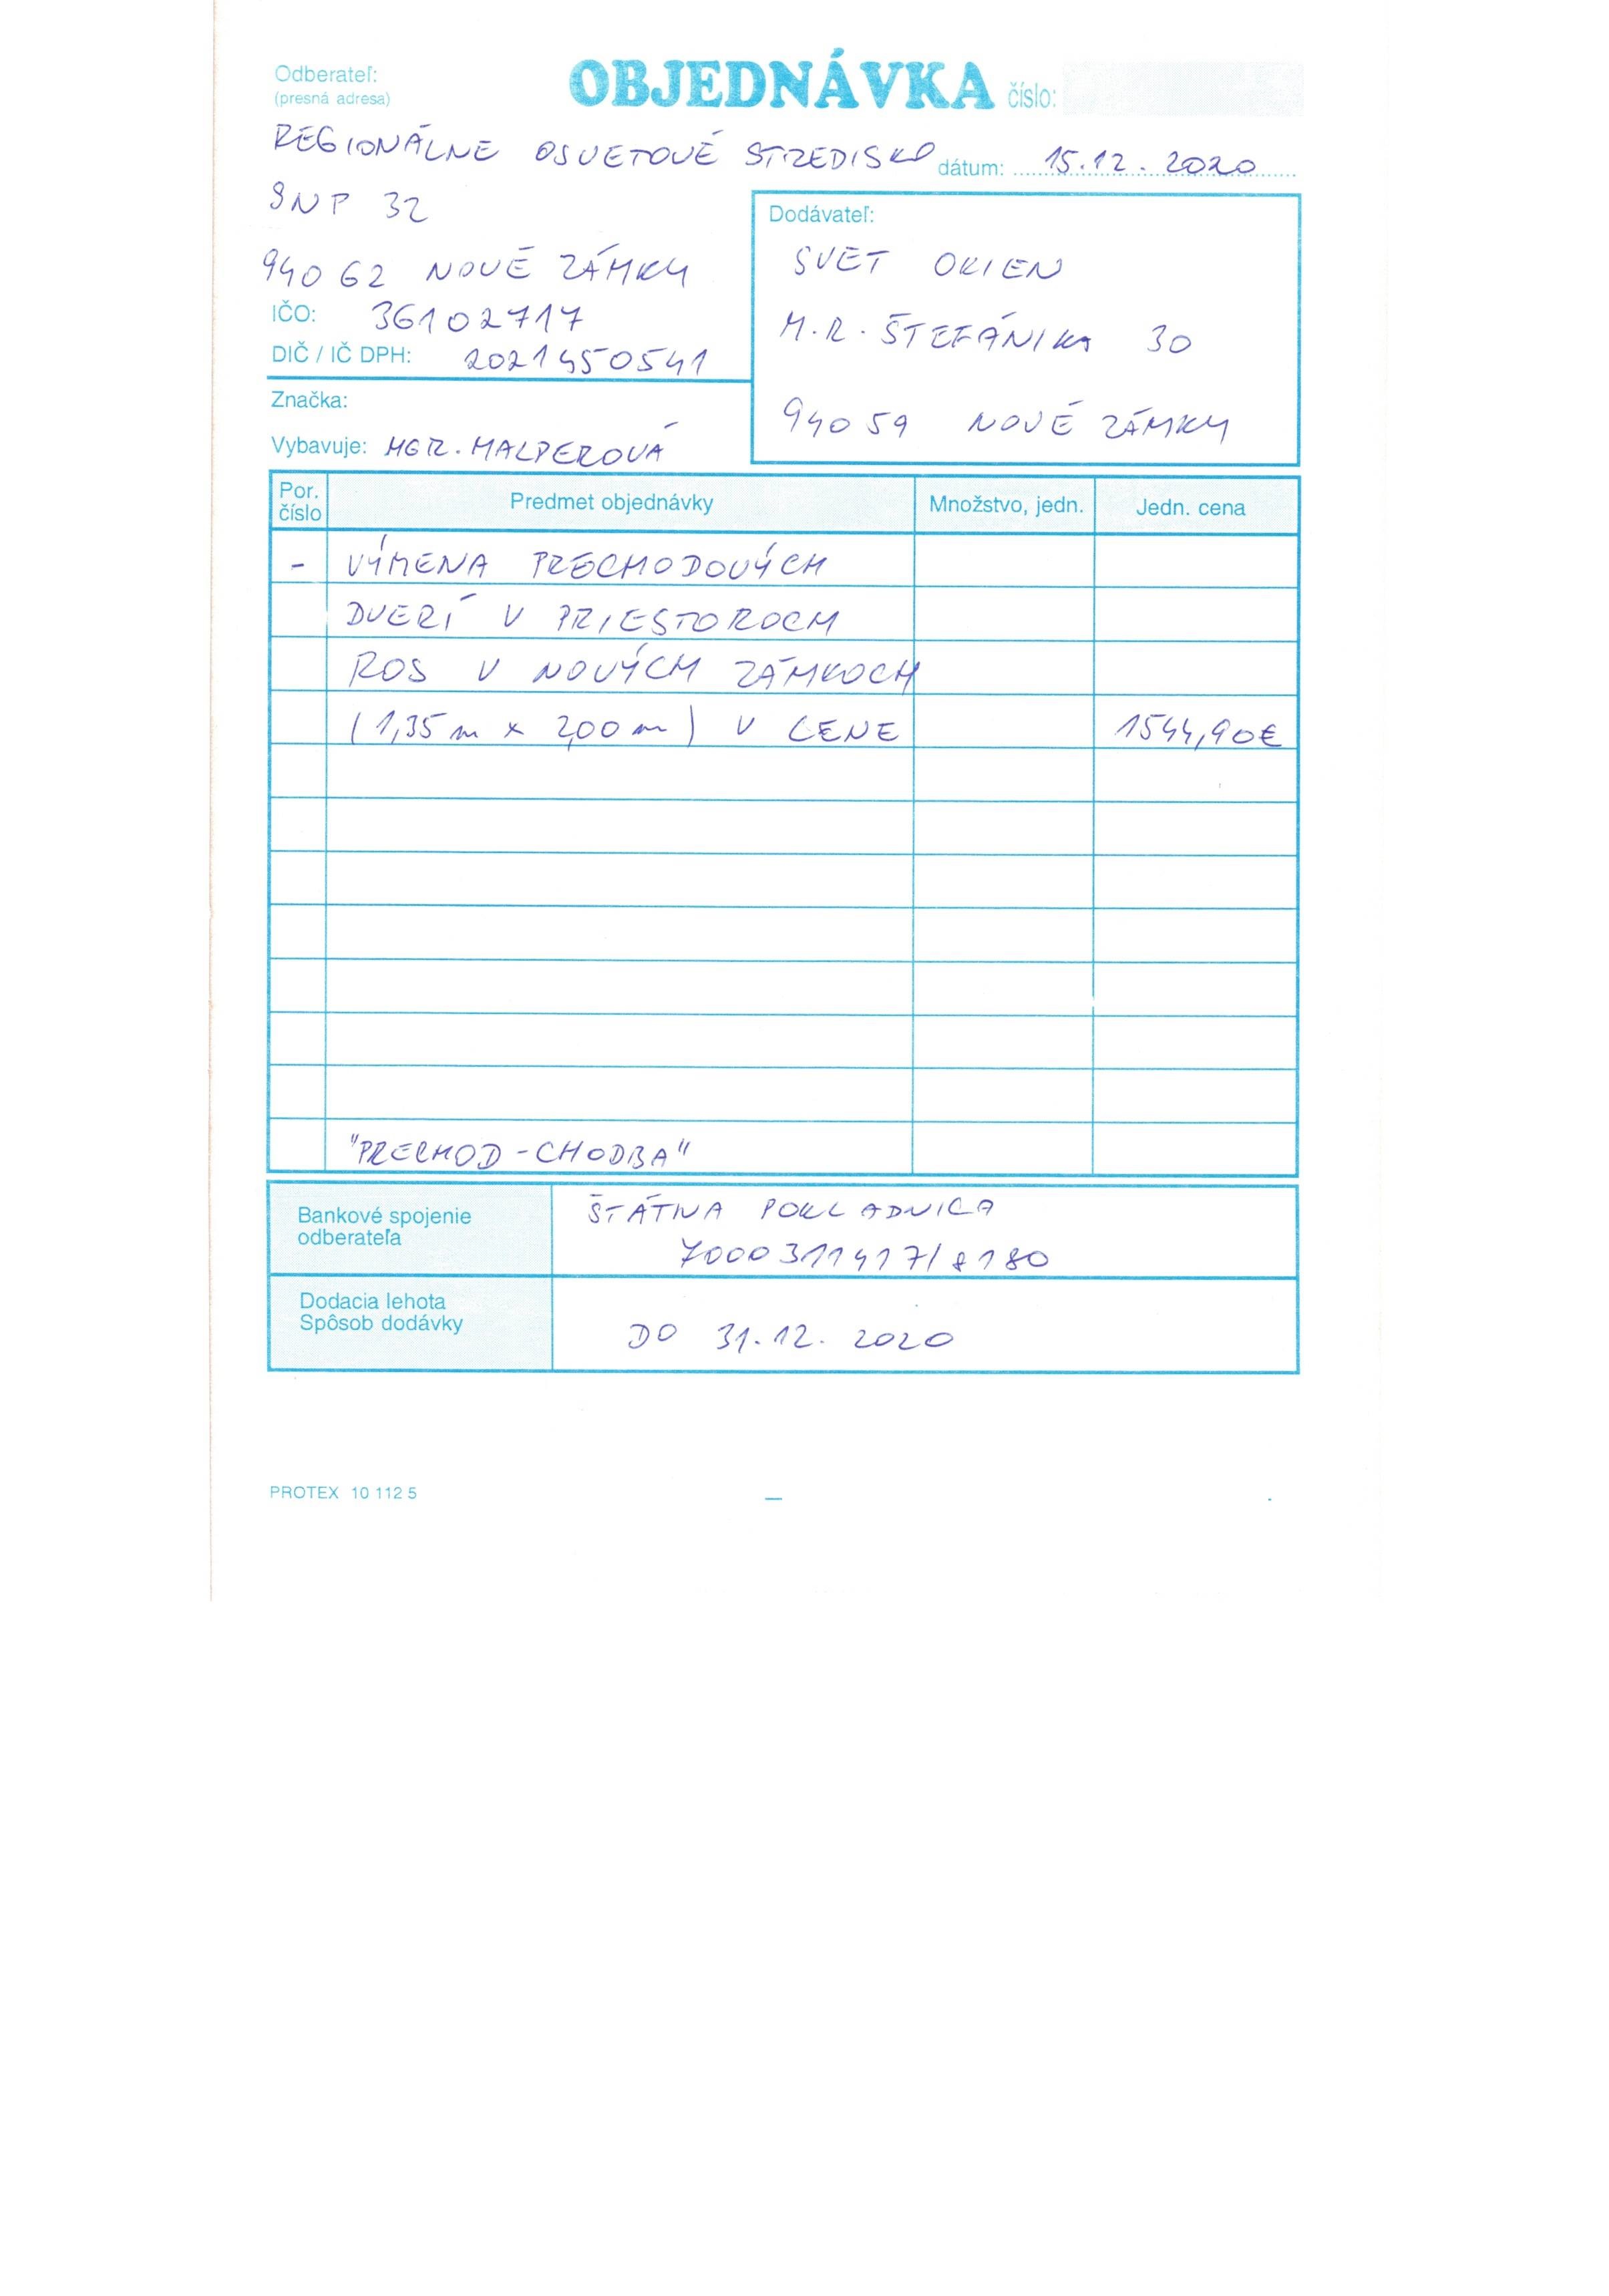 Odberateľ:
(presná adresa)
OBJEDNÁVKA číslo:
REGIONÁLNE OSVETOVÉ STREDISKO
dátum: 15.12.2020
SNP 32
940 62 NOVÉ ZÁMKY
IČO: 36102717
DIČ / IČ DPH: 2021450541
Značka:
Vybavuje: MGR. MALPEROVÁ
Dodávateľ:
SVET OKIEN
M.R. ŠTEFÁNIKA 30
940 59 NOVÉ ZÁMKY
Por. číslo Predmet objednávky Množstvo, jedn. Jedn. cena
- VÝMENA PRECHODOVÝCH
DVERÍ V PRIESTOROCH
ROS V NOVÝCH ZÁMKOCH
(1,35 m x 2,00 m) V CENE 1544,90€
"PRECHOD - CHODBA"
Bankové spojenie
odberateľa
ŠTÁTNA POKLADNICA
7000311417/8180
Dodacia lehota
Spôsob dodávky
DO 31.12.2020
PROTEX 10 112 5